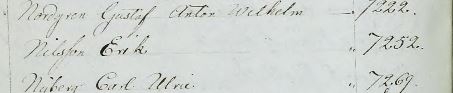 Nordgren Gustaf Anton Wilhelm — 7222.
Nilsson Erik " 7252.
Nyberg Carl Ulric " 7269.